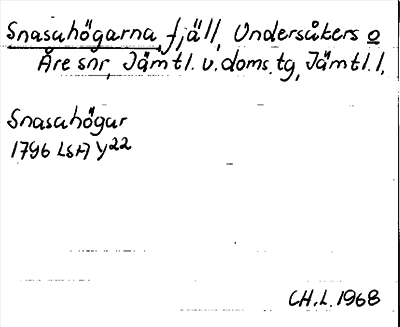 Snasahögarna, fjäll, Undersåkers o
Åre snr, Jämtl. v. doms. tg, Jämtl. l.
Snasahögar
1796 LSA Y22
CH. L. 1968